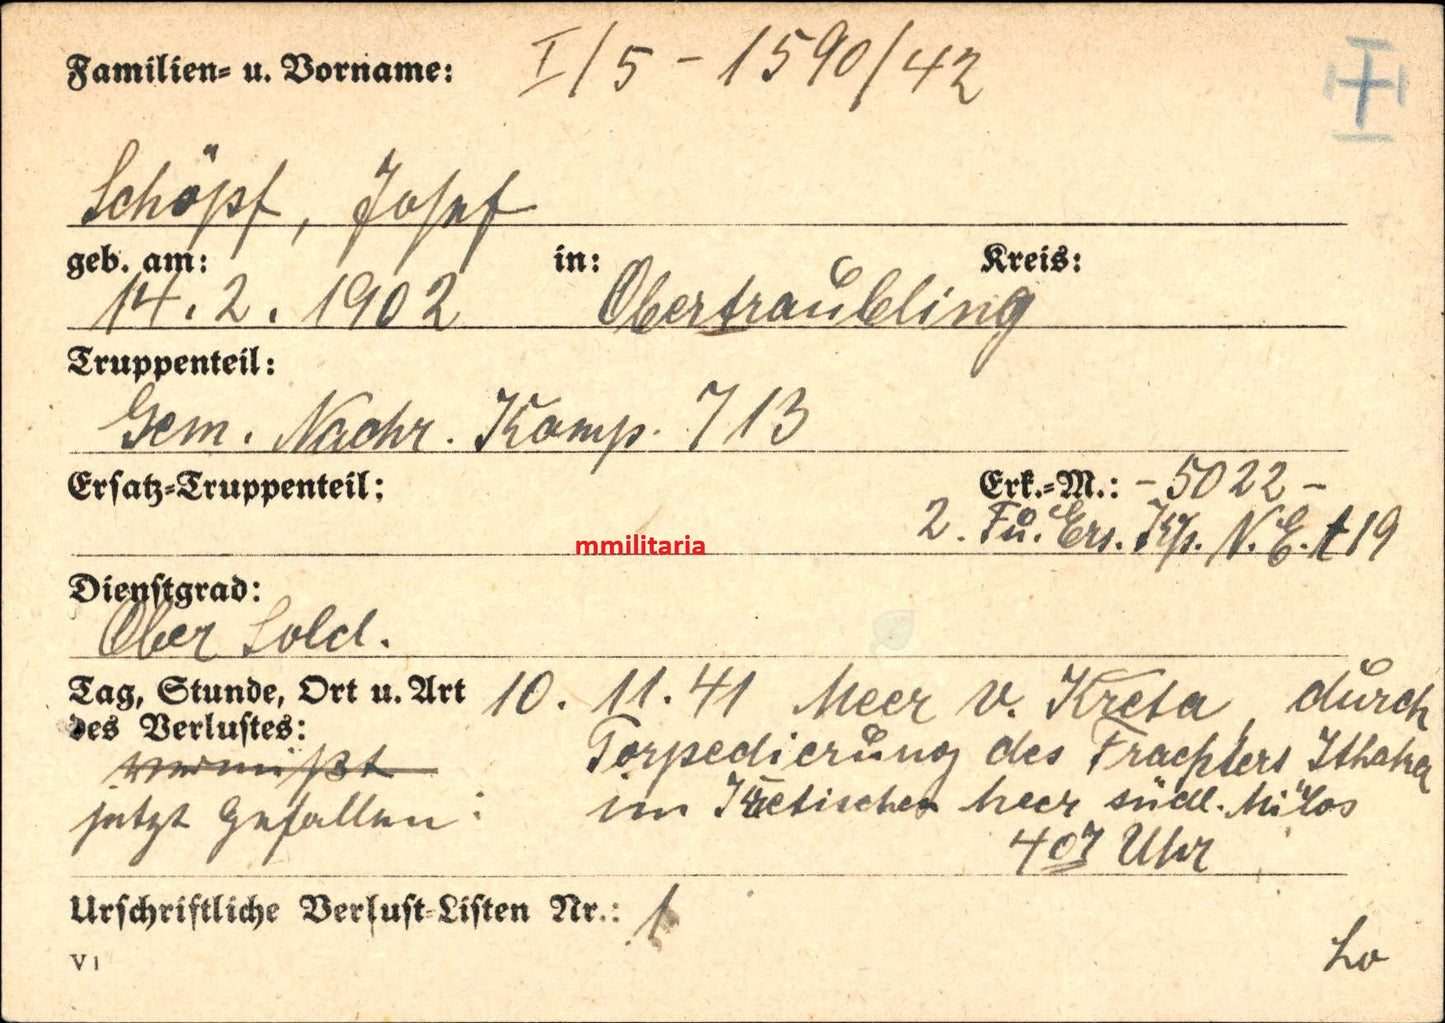 Familien- u. Vorname: I/5 - 1590/42
Schöpf, Josef
geb. am: in: Kreis:
14. 2. 1902 Obertraubling
Truppenteil:
Gem. Nachr. Komp. 713
Ersatz-Truppenteil: Erk.-M.: - 5022 -
2. Fu. Ers. Kp. N. E. A 19
mmilitaria
Dienstgrad:
Ober Sold.
Tag, Stunde, Ort u. Art 10. 11. 41 Meer v. Kreta, durch
des Verlustes: Torpedierung des Frachters Ithaka
vermißt
jetzt Gefallen: im Kretischen Meer südl. Milos
407 Uhr
Urschriftliche Verlust-Listen Nr.: 1
V 1
Lo